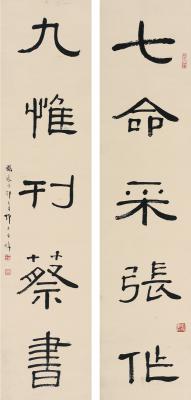 七命采張作
九惟刊蔡書